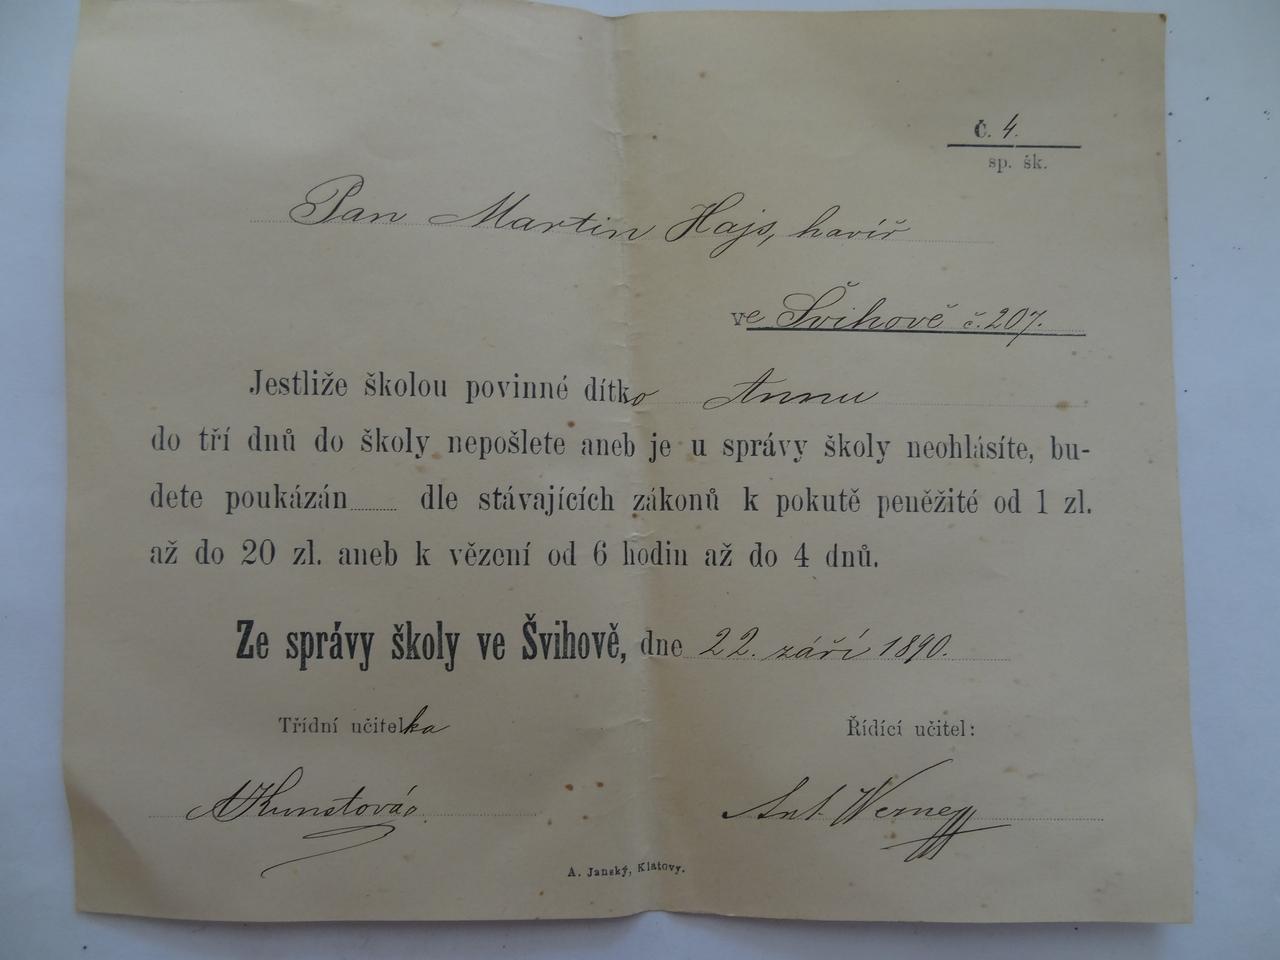 č. 4.
sp. šk.
Pan Martin Hajs, havíř
ve Švihově č. 207.
Jestliže školou povinné dítko Annu
do tří dnů do školy nepošlete aneb je u správy školy neohlásíte, bu-
dete poukázán dle stávajících zákonů k pokutě peněžité od 1 zl.
až do 20 zl. aneb k vězení od 6 hodin až do 4 dnů.
Ze správy školy ve Švihově, dne 22. září 1890.
Třídní učitelka
Řídící učitel:
AKunstová
Ant. Werner
A. Janský, Klatovy.